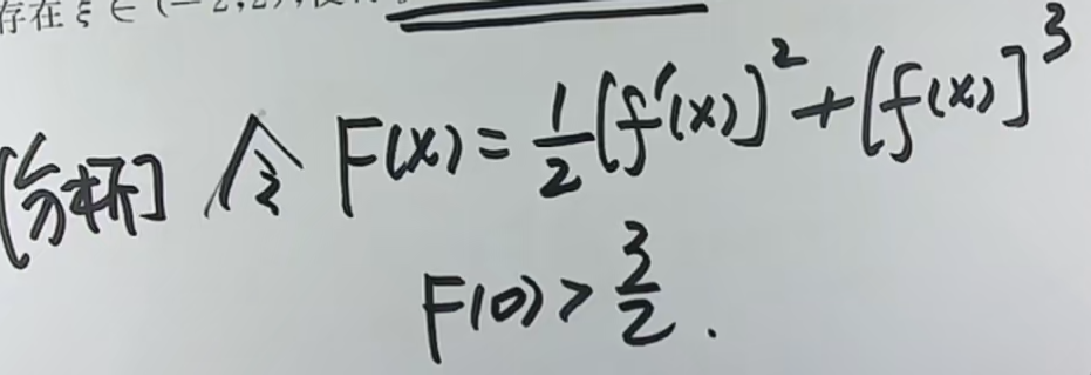 存在 ξ ∈ (-2,2),
[分析] 令 F(x) = \frac{1}{2}[f'(x)]^2 + [f(x)]^3
F(0) > \frac{3}{2}.